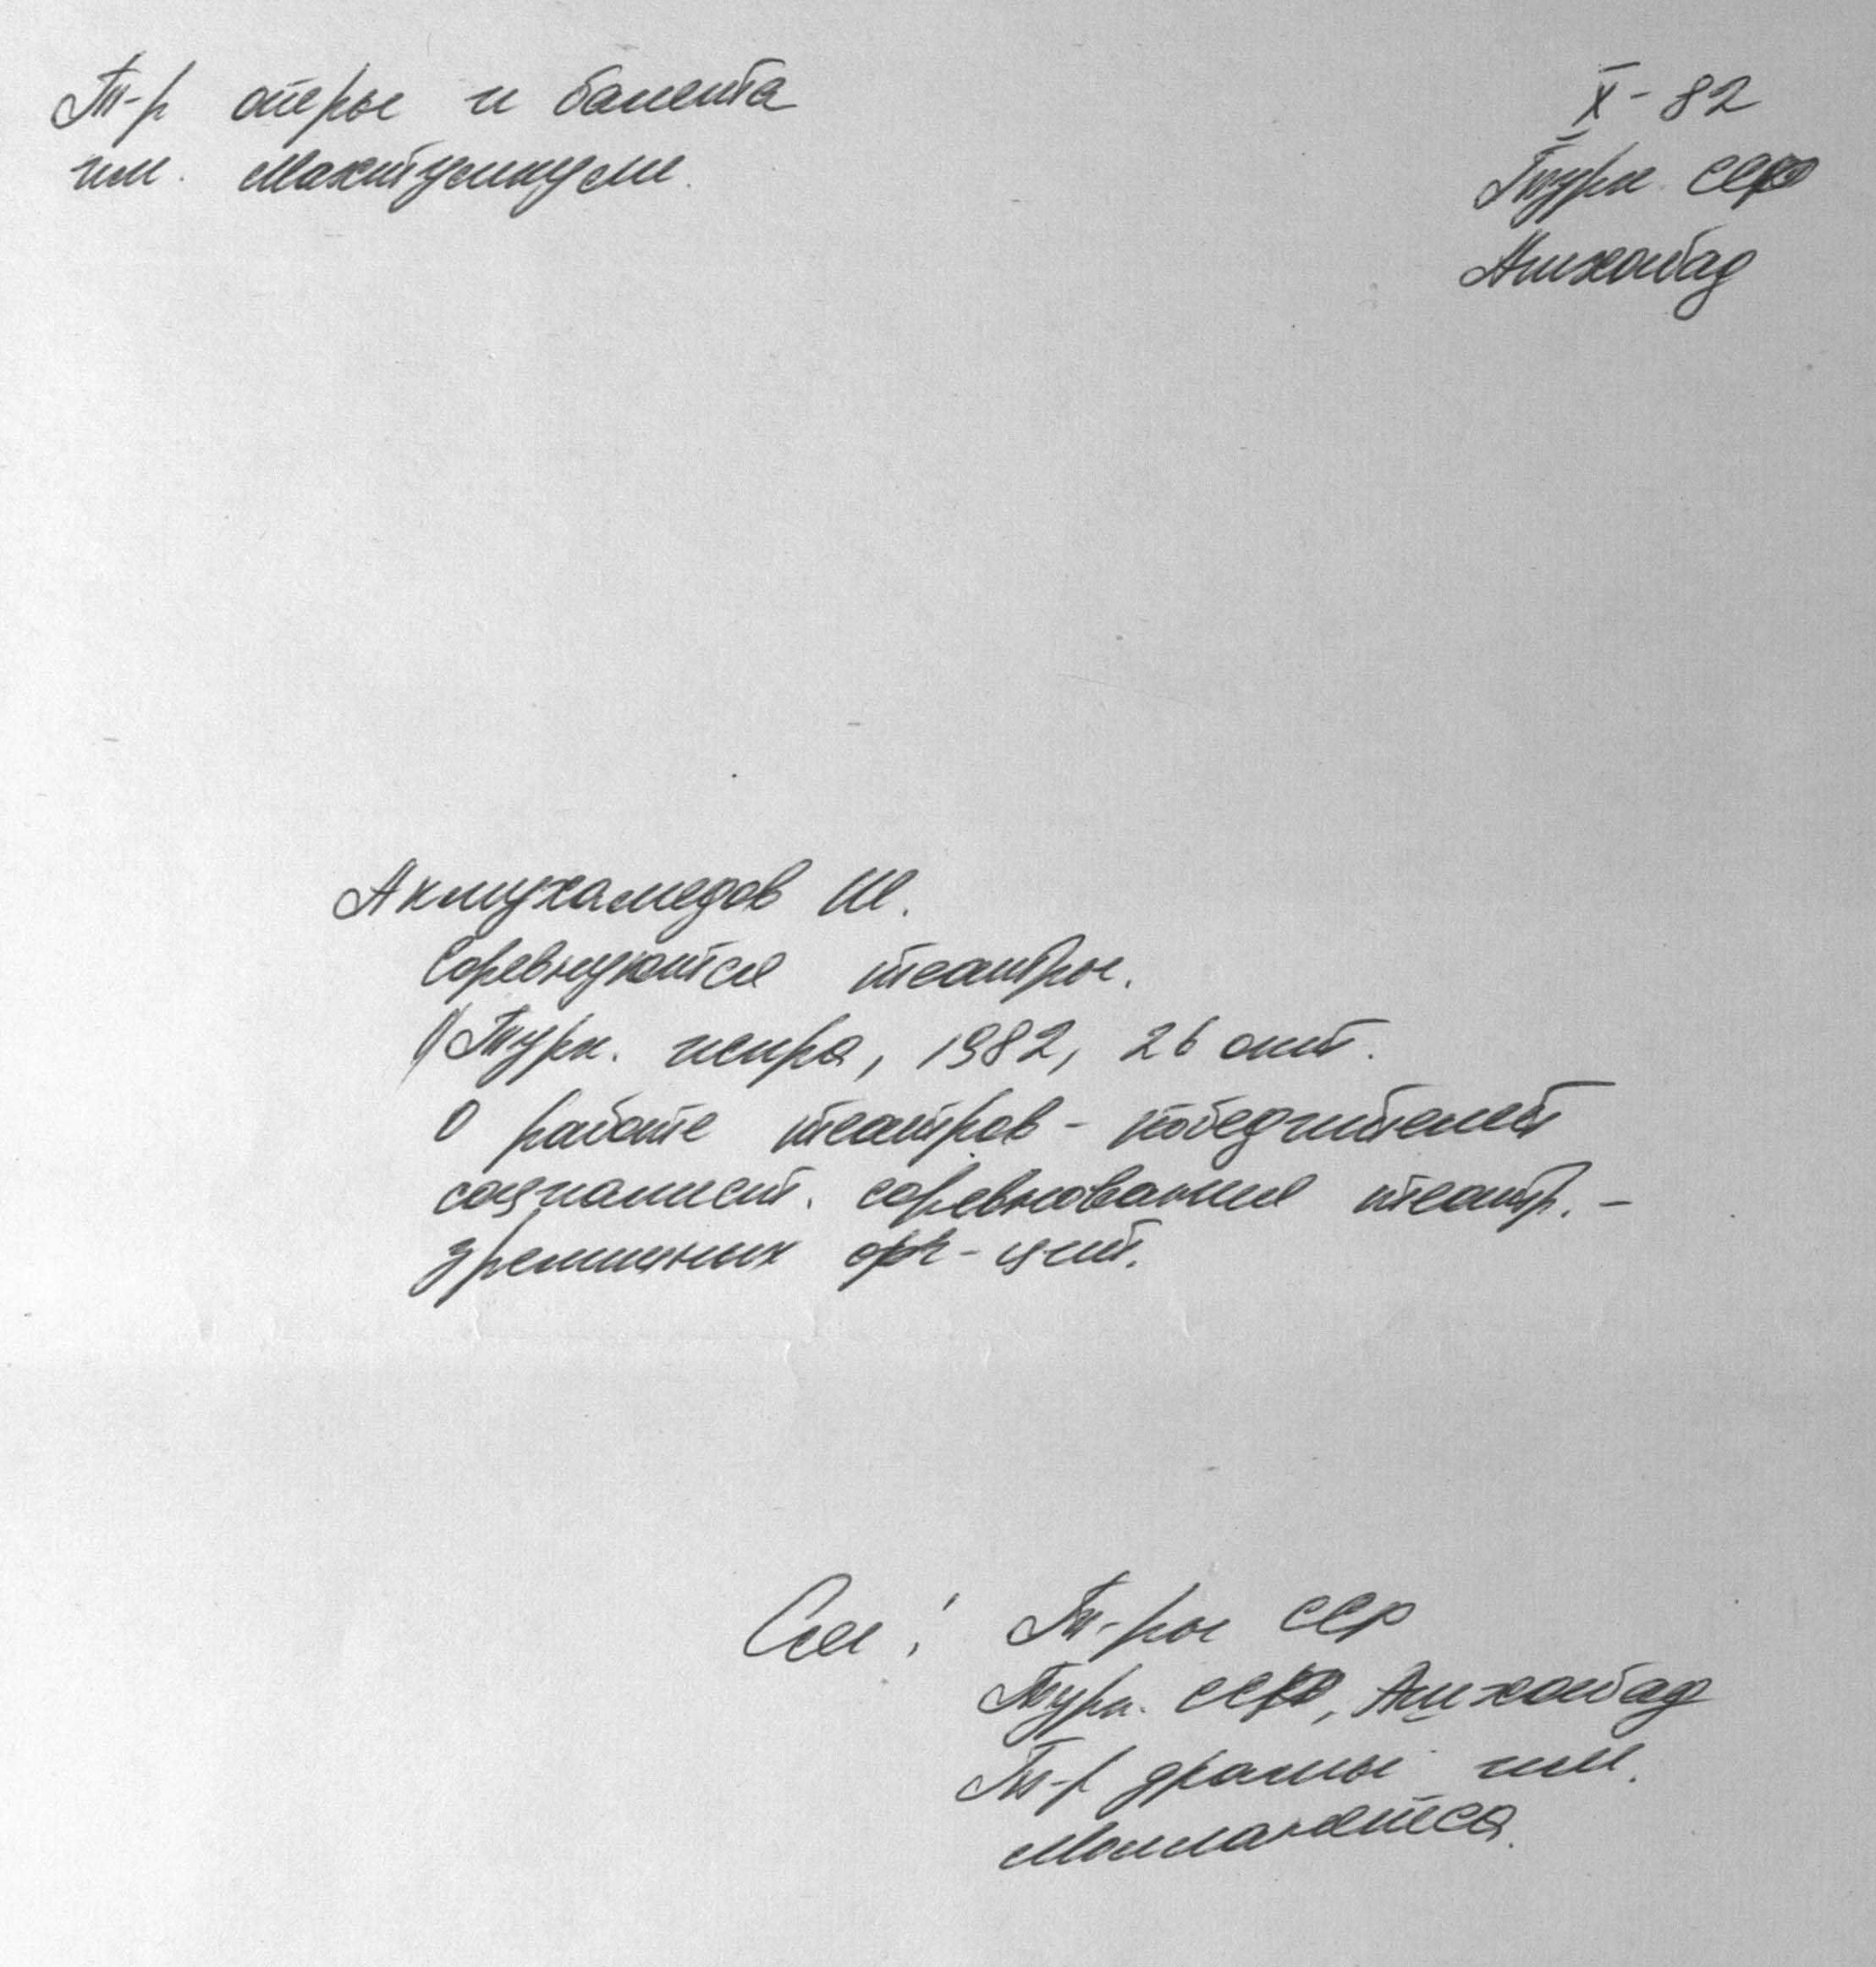 Т-р оперы и балета
им. Махтумкули.
X-82
Турк. ССР
Ашхабад
Акмухамедов Ш.
Соревнуются театры.
// Турк. искра, 1982, 26 окт.
О работе театров-победителей
социалист. соревнования театр.-
зрелищных орг-ций.
См: Т-ры ССР
Турк. ССР, Ашхабад
Т-р драмы им.
Молланепеса.